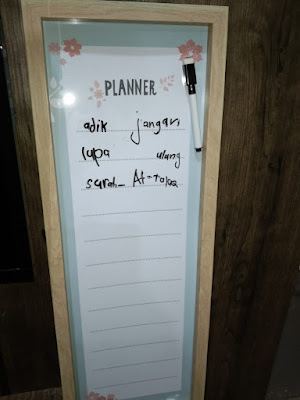 PLANNER
adik jangan
lupa ulang
surah At-Talaq